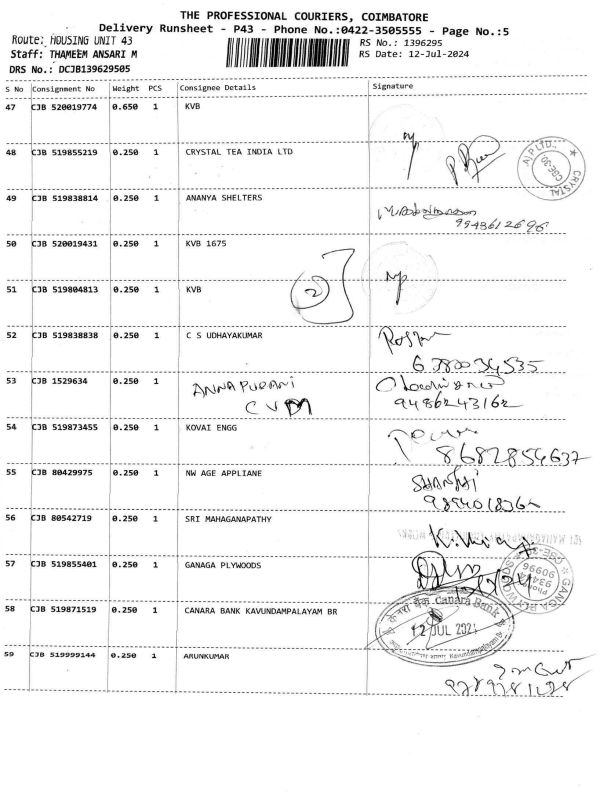 THE PROFESSIONAL COURIERS, COIMBATORE
Delivery Runsheet - P43 - Phone No.:0422-3505555 - Page No.:5
Route: HOUSING UNIT 43
RS No.: 1396295
Staff: THAMEEM ANSARI M
RS Date: 12-Jul-2024
DRS No.: DCJB139629505
S No Consignment No Weight PCS Consignee Details Signature
47 CJB 520019774 0.650 1 KVB
48 CJB 519855219 0.250 1 CRYSTAL TEA INDIA LTD
CRYSTAL (A) P LTD. CBE-30
49 CJB 519838814 0.250 1 ANANYA SHELTERS
9943612696
50 CJB 520019431 0.250 1 KVB 1675
2
51 CJB 519804813 0.250 1 KVB
52 CJB 519838838 0.250 1 C S UDHAYAKUMAR
53 CJB 1529634 0.250 1 ANNAPURANI
CVM
9486243162
54 CJB 519873455 0.250 1 KOVAI ENGG
8682854637
55 CJB 80429975 0.250 1 NW AGE APPLIANE
56 CJB 80542719 0.250 1 SRI MAHAGANAPATHY
57 CJB 519855401 0.250 1 GANAGA PLYWOODS
GANGA PLYWOODS Phone 93444 90996
58 CJB 519871519 0.250 1 CANARA BANK KAVUNDAMPALAYAM BR
केनरा बैंक Canara Bank
12 JUL 2024
Kavundampalayam Br
59 CJB 519999144 0.250 1 ARUNKUMAR